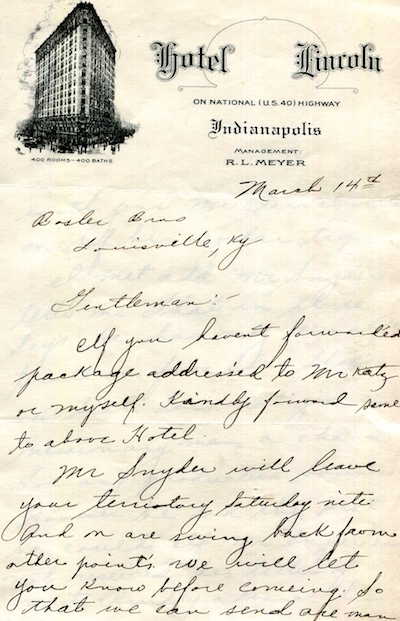 Hotel Lincoln
ON NATIONAL (U.S. 40) HIGHWAY
Indianapolis
MANAGEMENT:
R. L. MEYER
400 ROOMS – 400 BATHS
March 14th
Bosler Bros
Louisville, Ky
Gentleman:-
If you havent forwarded
package addressed to Mr Katz
or myself. Kindly forward same
to above Hotel.
Mr Snyder will leave
your terristory Saturday nite
And on are swing back from
other points. We will let
you know before comeing. So
that we can send are man